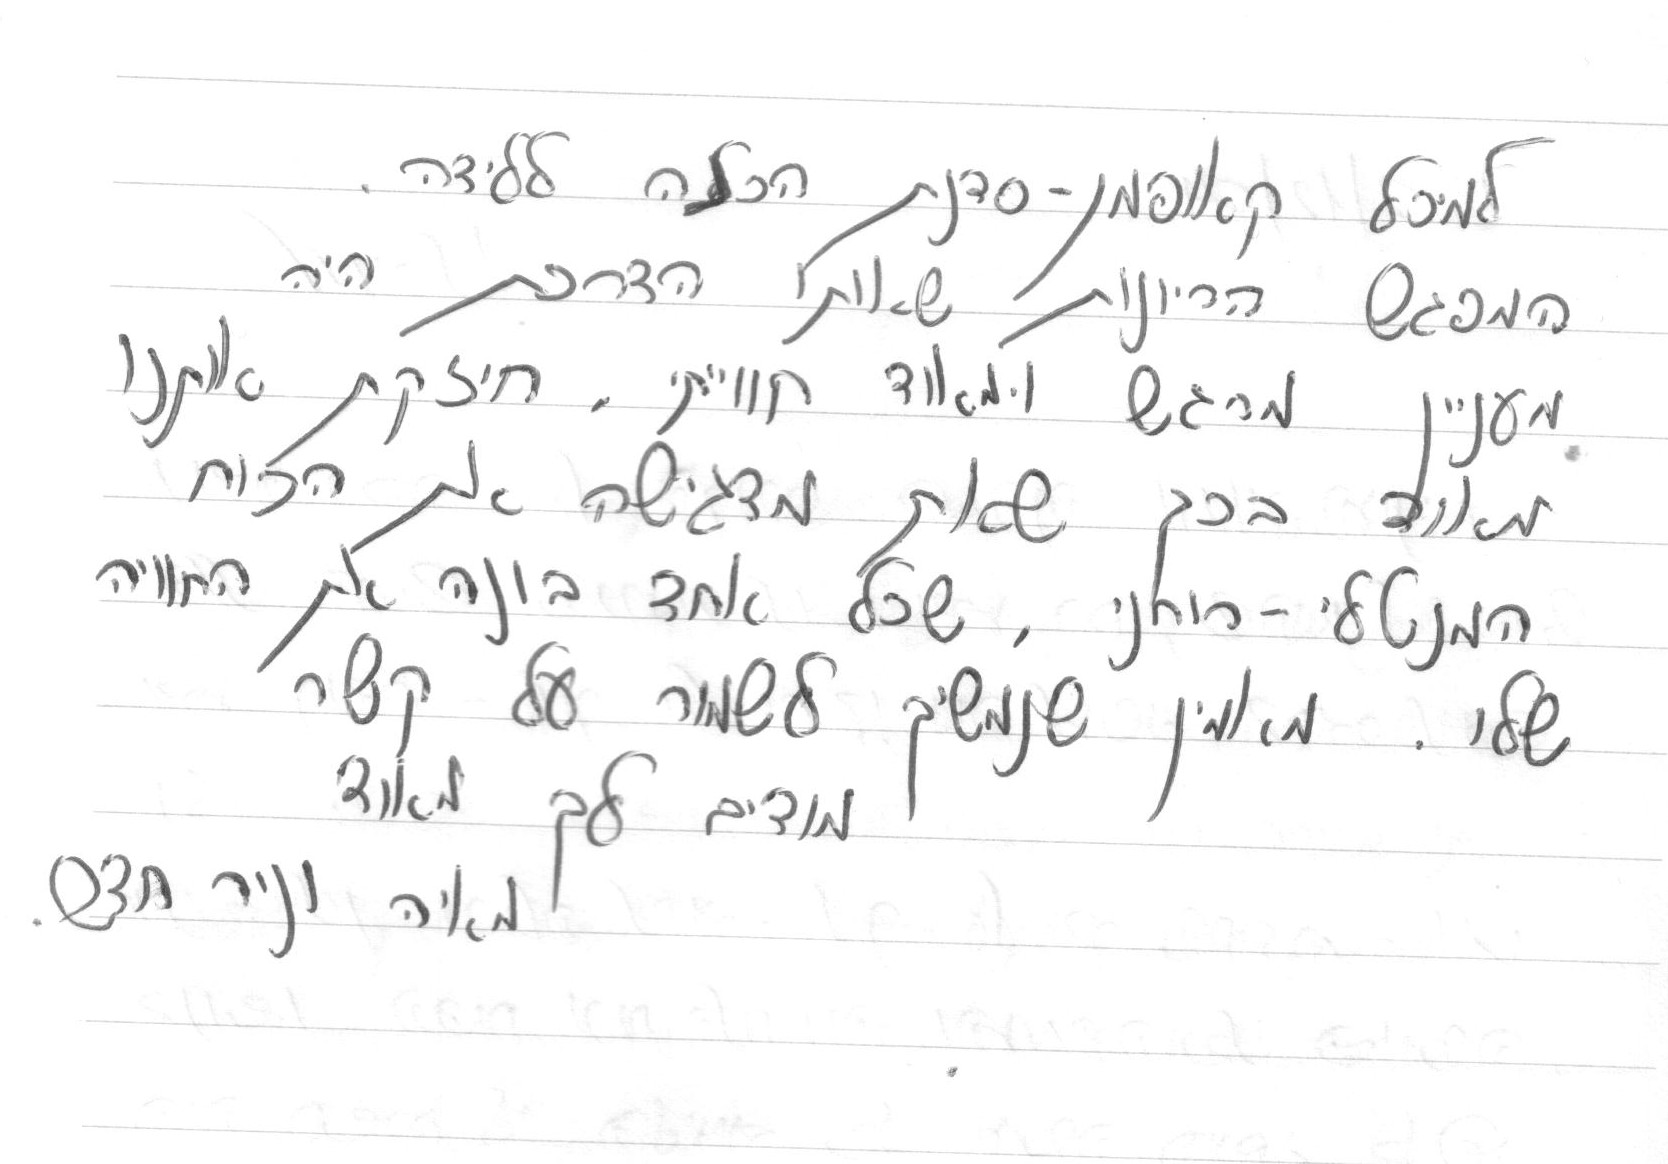 למיכל קאופמן - סדנת הכנה ללידה.
המפגש הריונות שאותו הדרכת היה
מעניין מרגש ומאוד חווייתי. חיזקת אותנו
מאוד בכך שאת מדגישה את הכוח
המנטלי - רוחני, שכל אחד בונה את החוויה
שלו. מאמין שנמשיך לשמור על קשר
מודים לך מאוד
מאיה וניר חדש.